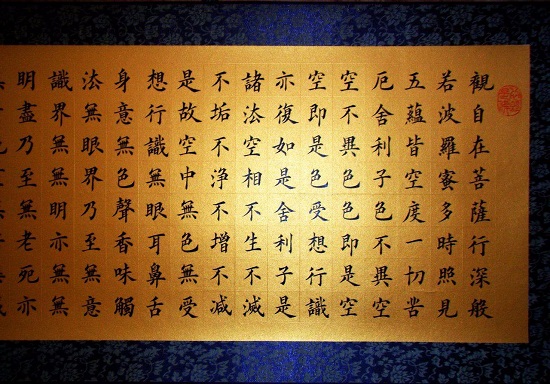 觀自在菩薩行深般
若波羅蜜多時照見
五蘊皆空度一切苦
厄舍利子色不異空
空不異色色即是空
空即是色受想行識
亦復如是舍利子是
諸法空相不生不滅
不垢不淨不增不減
是故空中無色無受
想行識無眼耳鼻舌
身意無色聲香味觸
法無眼界乃至無意
識界無無明亦無無
明盡乃至無老死亦